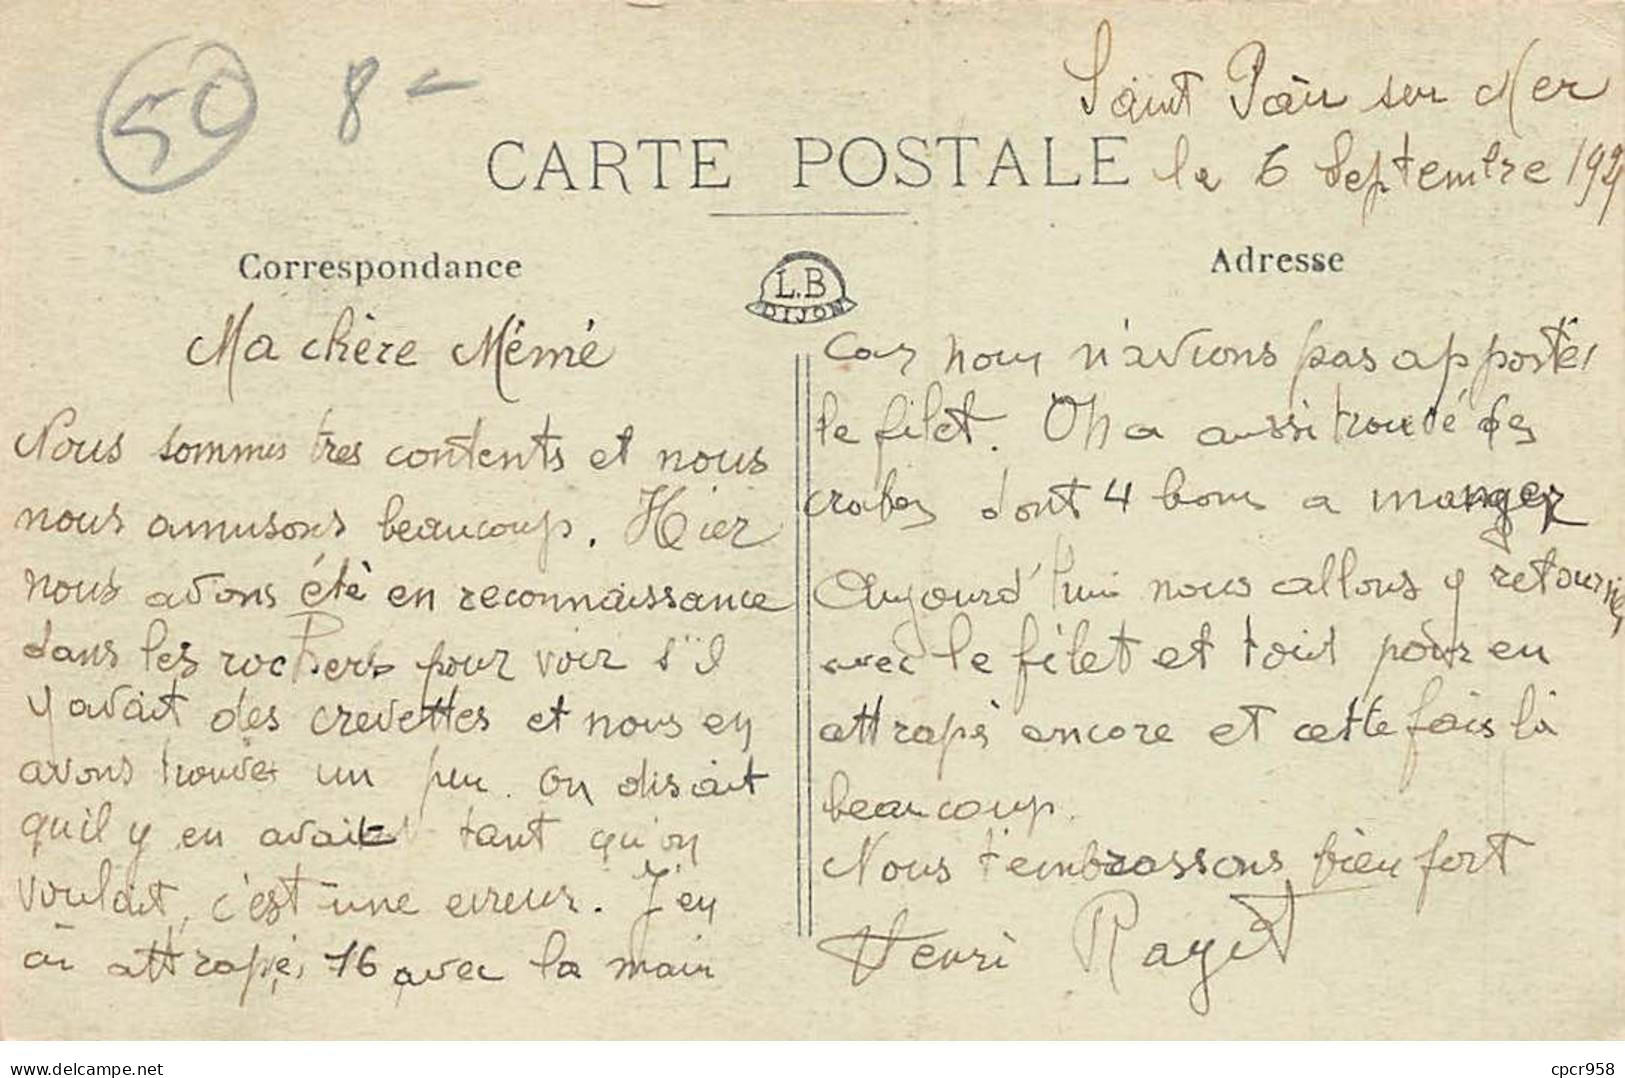 50 8 -
Saint Pair sur Mer
CARTE POSTALE
le 6 Septembre 192
Correspondance
Adresse
L.B
DIJON
Ma chère Mémé
Nous sommes tres contents et nous
nous amusons beaucoup. Hier
nous avons été en reconnaissance
dans les rochers pour voir s'il
y avait des crevettes et nous en
avons trouvées un peu. On disait
qu'il y en avait tant qu'on
voulait, c'est une erreur. J'en
ai attrapées 16 avec la main
car nous n'avions pas apportés
le filet. On a aussi trouvé des
crabes dont 4 bons a manger
Aujourd'hui nous allons y retourner
avec le filet et tout pour en
attrapé encore et cette fois là
beaucoup.
Nous t'embrassons bien fort
Henri Rayet
www.delcampe.net
cpcr958